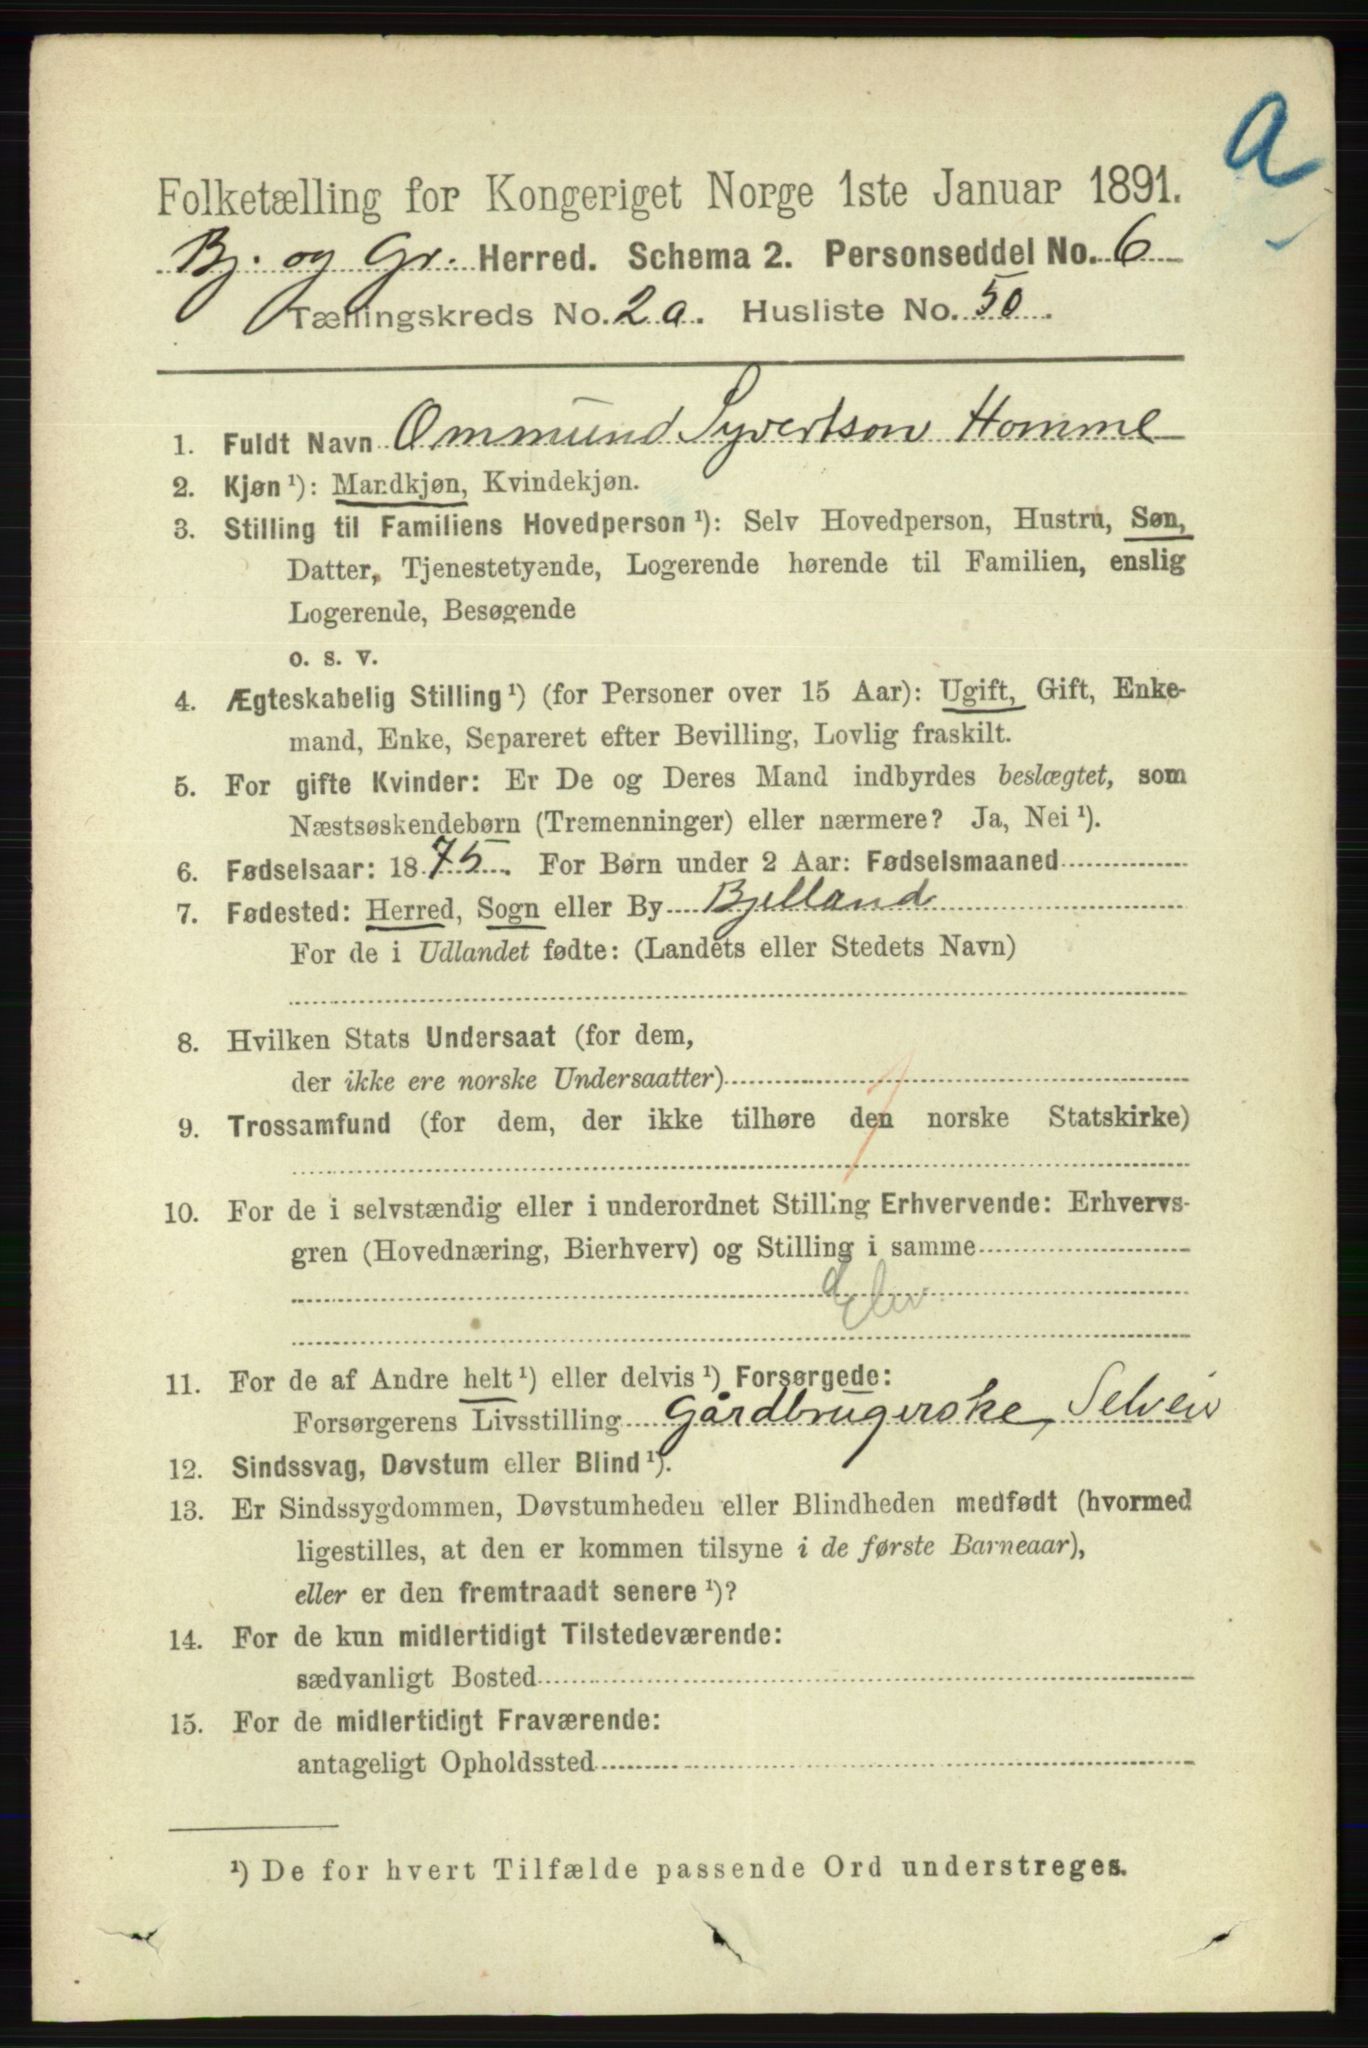 a
Folketælling for Kongeriget Norge 1ste Januar 1891.
Bj. og Gr. Herred. Schema 2. Personseddel No. 6
Tællingskreds No. 2 a. Husliste No. 50.
1. Fuldt Navn Ommund Syvertson Homme
2. Kjøn ¹): Mandkjøn, Kvindekjøn.
3. Stilling til Familiens Hovedperson ¹): Selv Hovedperson, Hustru, Søn,
Datter, Tjenestetyende, Logerende hørende til Familien, enslig
Logerende, Besøgende
o. s. v.
4. Ægteskabelig Stilling ¹) (for Personer over 15 Aar): Ugift, Gift, Enke-
mand, Enke, Separeret efter Bevilling, Lovlig fraskilt.
5. For gifte Kvinder: Er De og Deres Mand indbyrdes beslægtet, som
Næstsøskendebørn (Tremenninger) eller nærmere? Ja, Nei ¹).
6. Fødselsaar: 1875. For Børn under 2 Aar: Fødselsmaaned
7. Fødested: Herred, Sogn eller By Bjelland
For de i Udlandet fødte: (Landets eller Stedets Navn)
8. Hvilken Stats Undersaat (for dem,
der ikke ere norske Undersaatter)
9. Trossamfund (for dem, der ikke tilhøre den norske Statskirke)
10. For de i selvstændig eller i underordnet Stilling Erhvervende: Erhvervs-
gren (Hovednæring, Bierhverv) og Stilling i samme
11. For de af Andre helt ¹) eller delvis ¹) Forsørgede:
Forsørgerens Livsstilling Gårdbrugerske, Selveier
12. Sindssvag, Døvstum eller Blind ¹).
13. Er Sindssygdommen, Døvstumheden eller Blindheden medfødt (hvormed
ligestilles, at den er kommen tilsyne i de første Barneaar),
eller er den fremtraadt senere ¹)?
14. For de kun midlertidigt Tilstedeværende:
sædvanligt Bosted
15. For de midlertidigt Fraværende:
antageligt Opholdssted
¹) De for hvert Tilfælde passende Ord understreges.